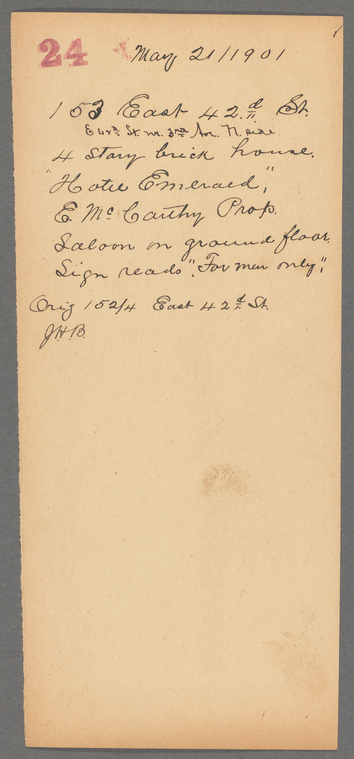 24 May 21/1901
153 East 42.d St.
E 42nd St nr. 3rd Av. N. side
4 Story brick house.
"Hotel Emerald",
E McCarthy Prop.
Saloon on ground floor.
Sign reads, "For men only",
Orig 152/4 East 42d St.
J.H.B.